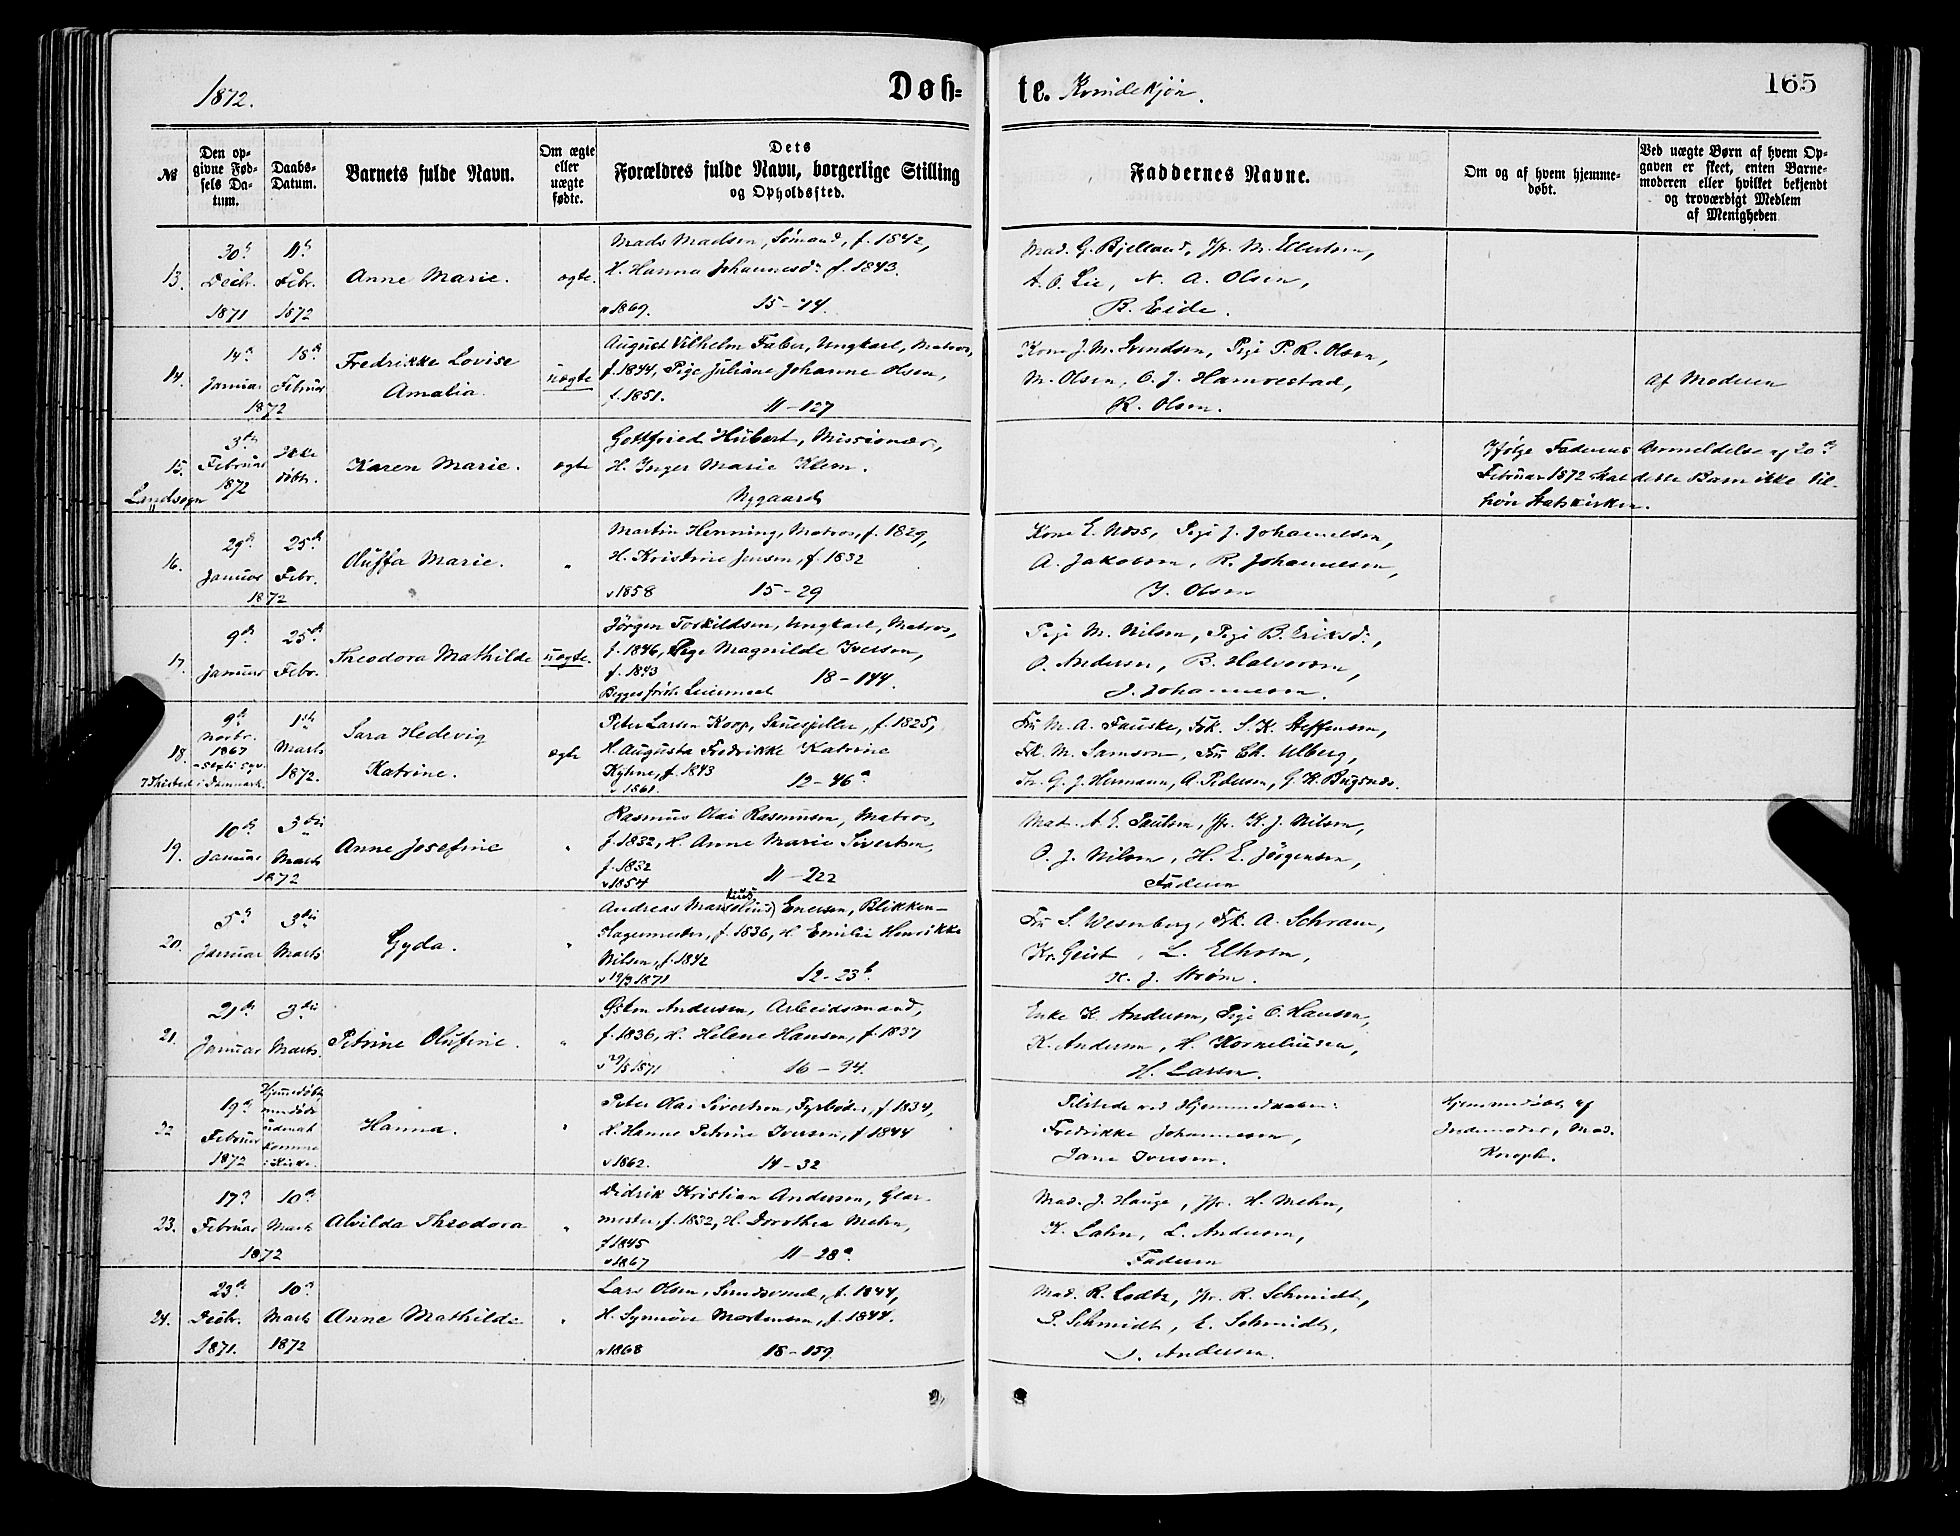 1872.
Døb=
te. Kvindekjön.
165
№
Den op-
givne Fød-
sels Da-
tum.
Daabs-
Datum.
Barnets fulde Navn.
Om ægte
eller
uægte
fødte.
Dets
Forældres fulde Navn, borgerlige Stilling
og Opholdssted.
Faddernes Navne.
Om og af hvem hjemme-
døbt.
Ved uægte Børn af hvem Op-
gaven er skeet, enten Barne-
moderen eller hvilket bekjendt
og troværdigt Medlem
af Menigheden
13.
30te
Decbr.
1871
11te
Febr.
1872
Anne Marie.
ægte.
Mads Madsen, Sömand, f. 1842,
H. Hanna Johannesdr. f. 1843.
v 1869. 15-74.
Mad. G. Bjelland, Jfr. M. Ellertsen,
A. O. Lie, N. A. Olsen,
B. Eide.
14.
14de
Januar
18de
Februar
1872
Fredrikke Lovise
Amalia.
uægte
August Vilhelm Faber, Ungkarl, Matros,
f. 1844, Pige Juliane Johanne Olsen,
f. 1851. 11-127
Kone J. M. Svendsen, Pige P. R. Olsen,
M. Olsen, O. J. Hamrestad,
K. Olsen.
Af Moderen
15.
Landsogn
3die
Februar
1872
Ikke
döbt.
Karen Marie.
ægte
Gottfried Hübert, Missionær,
H. Inger Marie Klem.
Nygaard
Ifölge Faderens Anmeldelse af 20de
Februar 1872 skal dette Barn ikke til-
höre Statskirken.
16.
29de
Januar
25de
Febr.
1872
Oluffa Marie.
"
Martin Henning, Matros, f. 1829,
H. Kristine Jensen, f. 1832
v 1858 15-29
Kone E. Næss, Pige J. Johannesen,
A. Jakobsen, R. Johannesen,
J. Olsen
17.
9de
Januar
25de
Febr.
Theodora Mathilde
uægte.
Jörgen Torkildsen, Ungkarl, Matros,
f. 1846, Pige Magnilde Iversen,
f. 1843 18-144.
Begges förste Leiermaal
Pige M. Nilsen, Pige B. Eriksdr.,
O. Andersen, B. Halvorsen,
J. Johannesen.
18.
9de
Novbr.
1867
Thisted i Danmark.
1ste
Marts
1872.
Sara Hedevig
Katrine.
ægte
Peter Larsen Koop, Skuespiller, f. 1825,
H. Augusta Fredrikke Katrine
Kyhne, f. 1843
v 1861. 12-46a
Fru M. A. Fauske, Frk. S. K. Steffensen,
Fr. M. Samson, Fru Ch. Ulberg,
Th. G. J. Hermann, A. Pedersen, G. K. Bugsnæs.
19.
10de
Januar
3die
Marts
1872
Anne Josefine
"
Rasmus Olai Rasmussen, Matros,
f. 1832, H. Anne Marie Sivertsen,
f. 1832
v 1854 11-222
Mad. A. E. Paulsen, Jfr. K. J. Nilsen,
O. J. Nilsen, H. E. Jörgensen,
Faderen
20.
5te
Januar
3die
Marts
Gyda.
"
Andreas Enersen, Blikken-
slagermester, f. 1836, H. Emilie Henrikke
Nilsen, f. 1842
v 19/3 1871 12-23b.
Fru S. Wesenberg, Frk. A. Schram,
Kr. Geist, L. Elholm,
H. J. Ström.
21.
21de
Januar
3die
Marts.
Petrine Olufine.
"
Andersen, Arbeidsmand,
f. 1836, H. Helene Hansen, f. 1837
v 1871 16-94.
Enke K. Andersen, Pige O. Hansen,
K. Andersen, H. Korneliussen,
H. Larsen.
22
19de
Februar
1872
Hjemmedöbt
men döde
uden at
komme
i Kirke.
Hanna.
"
Peter Olai Sivertsen, Fyrböder, f. 1834,
H. Hanne Petrine Iversen, f. 1844
v 1862. 14-32
Tilstede ved Hjemmedaaben:
Fredrikke Johannesen,
Jane Iversen.
Hjemmedöbt af
Jordemoder, Mad.
Knoph.
23.
17de
Februar
10de
Marts
1872
Alvilda Theodora
"
Didrik Kristian Andersen, Glar-
mester, f. 1832, H. Dorothea Mehn,
f 1845
v 1867 11-28a
Mad. J. Hauge, Jfr. H. Mehn,
K. Lahn, L. Andersen,
Faderen
24.
23de
Decbr.
1871.
10de
Marts
1872
Anne Mathilde
"
Lars Olsen, f. 1844,
H. Synnöve Mortensen, f. 1844.
v 1868 18-159.
Mad. R. Lodtz, Jfr. R. Schmidt,
P. Schmidt, E. Schmidt,
Andersen.